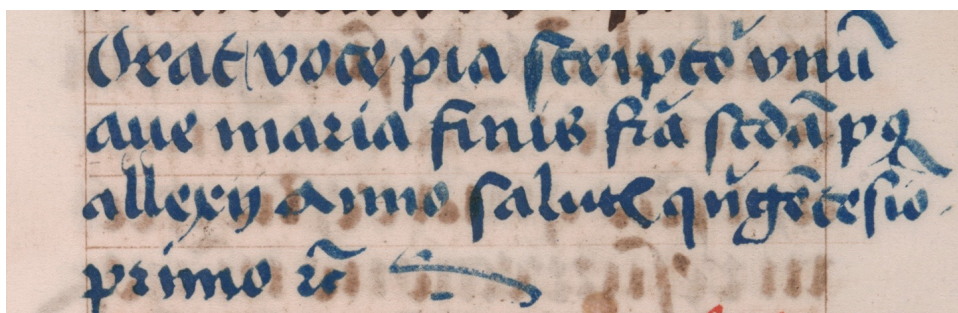 Orat voce pia scriptē vnū
aue maria finis fr̄a scd̄a pq
allexij Anno salutꝭ qn̄gētesīo
primo ꝛc̄